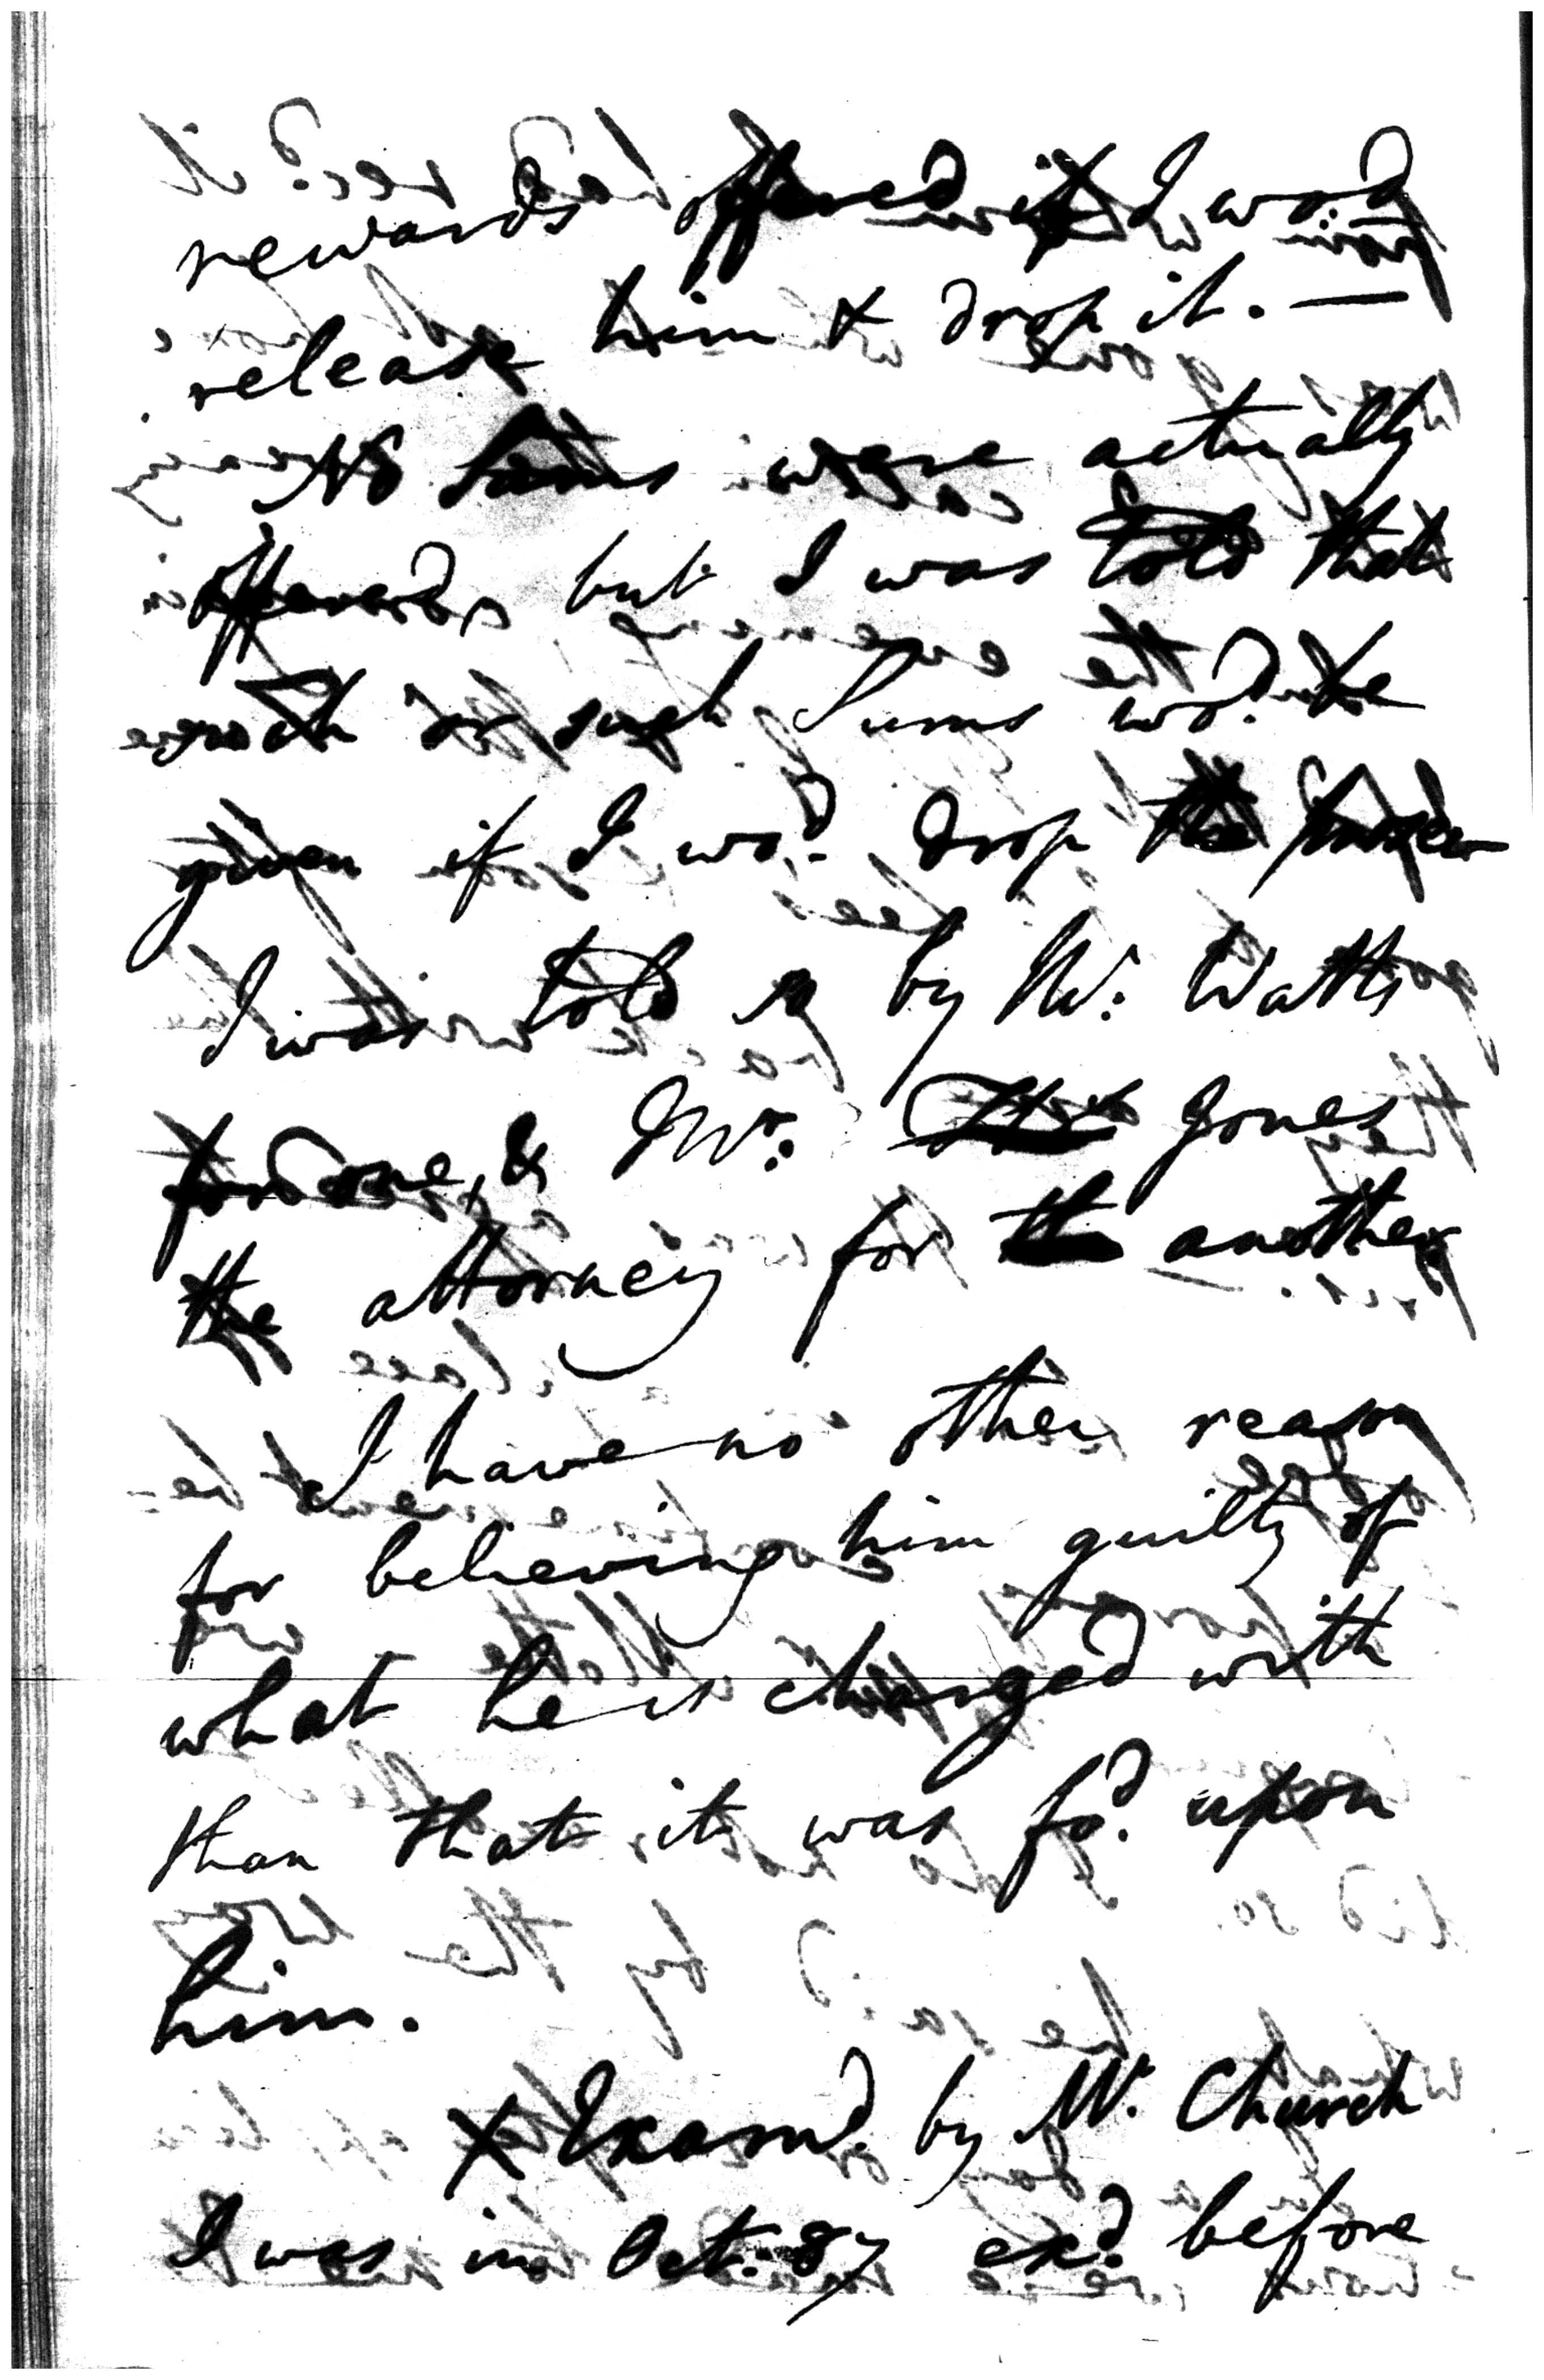 rewards offered if I wod
release him & drop it. —
No Sums were actually
offered, but I was told that
such or such Sums wod. be
given if I wod. drop the
I was told so by Mr. Watts
for one, & Mr. Jones
the attorney for another
I have no other reason
for believing him guilty of
what he is charged with
than that it was fod. upon
him.
X Examd. by Mr. Church
I was in Oct. 87 exd. before